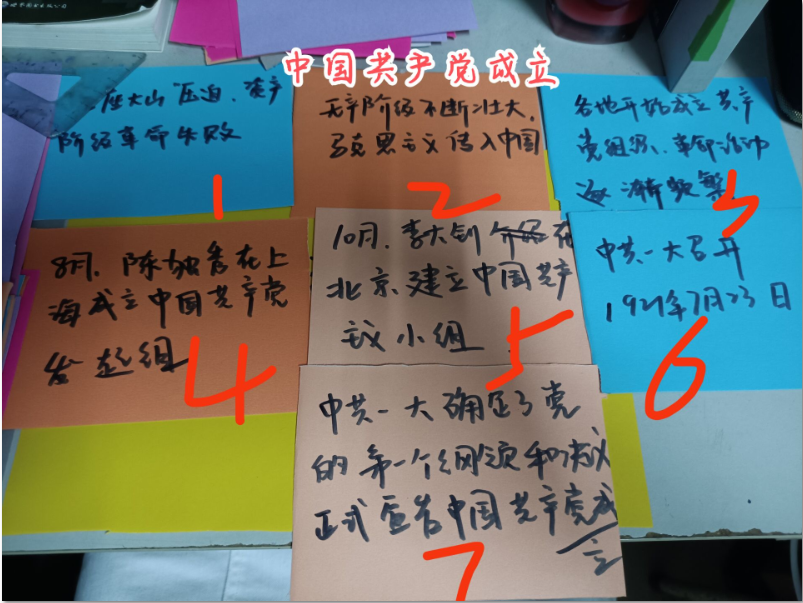 中国共产党成立
座大山压迫、资产
阶级革命失败
1
无产阶级不断壮大,
马克思主义传入中国
2
各地开始成立共产
党组织、革命活动
逐渐频繁
3
8月、陈独秀在上
海成立中国共产党
发起组
4
10月、李大钊 在
北京、建立中国共产
主义小组
5
中共一大召开
1921年7月23日
6
中共一大确定了党
的第一个纲领和决议
正式宣告中国共产党成
立
7